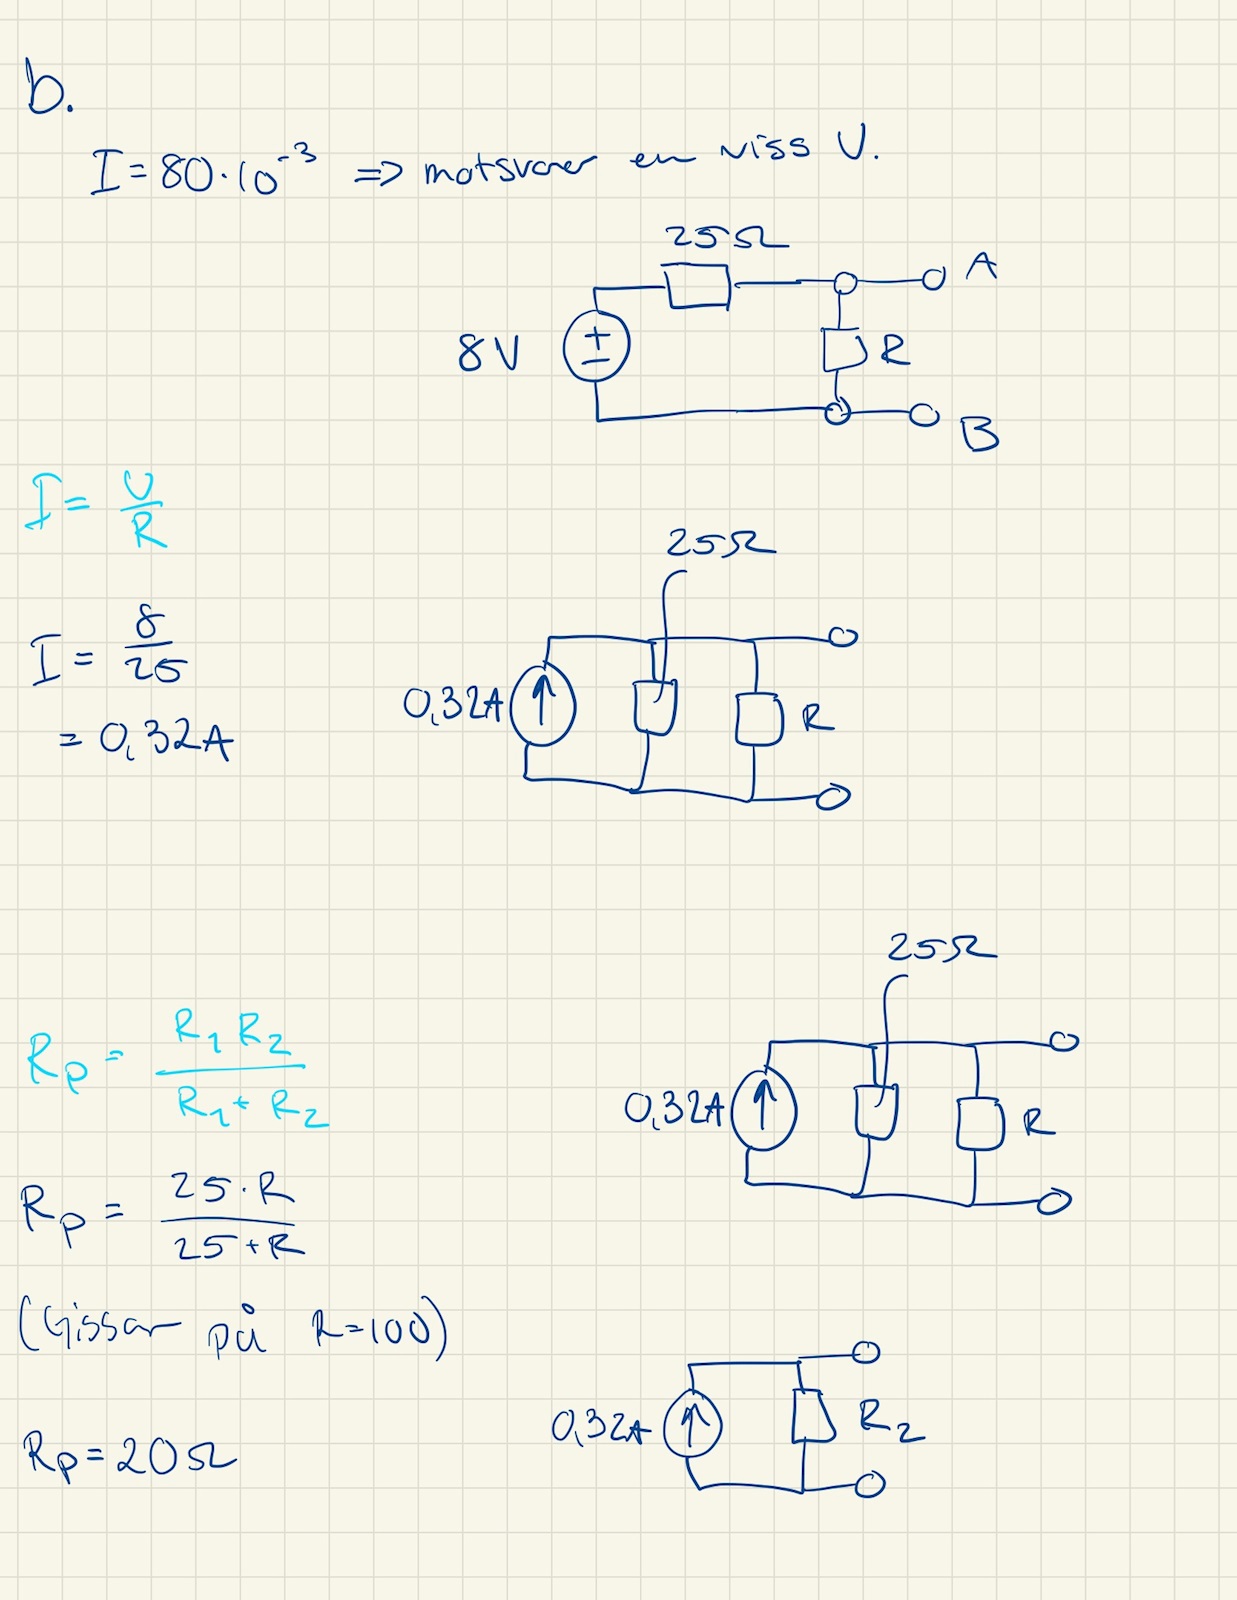 b.
I = 80·10⁻³ => motsvarar en viss U.
25Ω
A
8V
+
−
R
B
I = U/R
25Ω
I = 8/25
0,32A
R
= 0,32A
25Ω
Rp = R1 R2 / R1 + R2
0,32A
R
Rp = 25·R / 25+R
(Gissar på R=100)
0,32A
R2
Rp = 20Ω